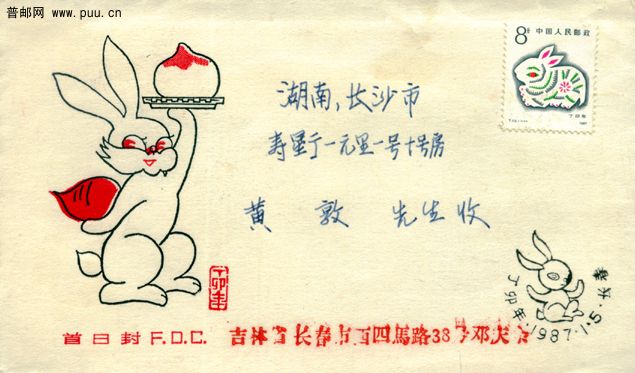 普邮网
www.puu.cn
8分 中国人民邮政
丁卯年
1987
湖南,长沙市
寿星街一元里一号十号房
黄 敦 先生收
丁卯年
丁卯年 1987.1.5. 长春
首日封 F.D.C. 吉林省长春市西四馬路38号邓庆